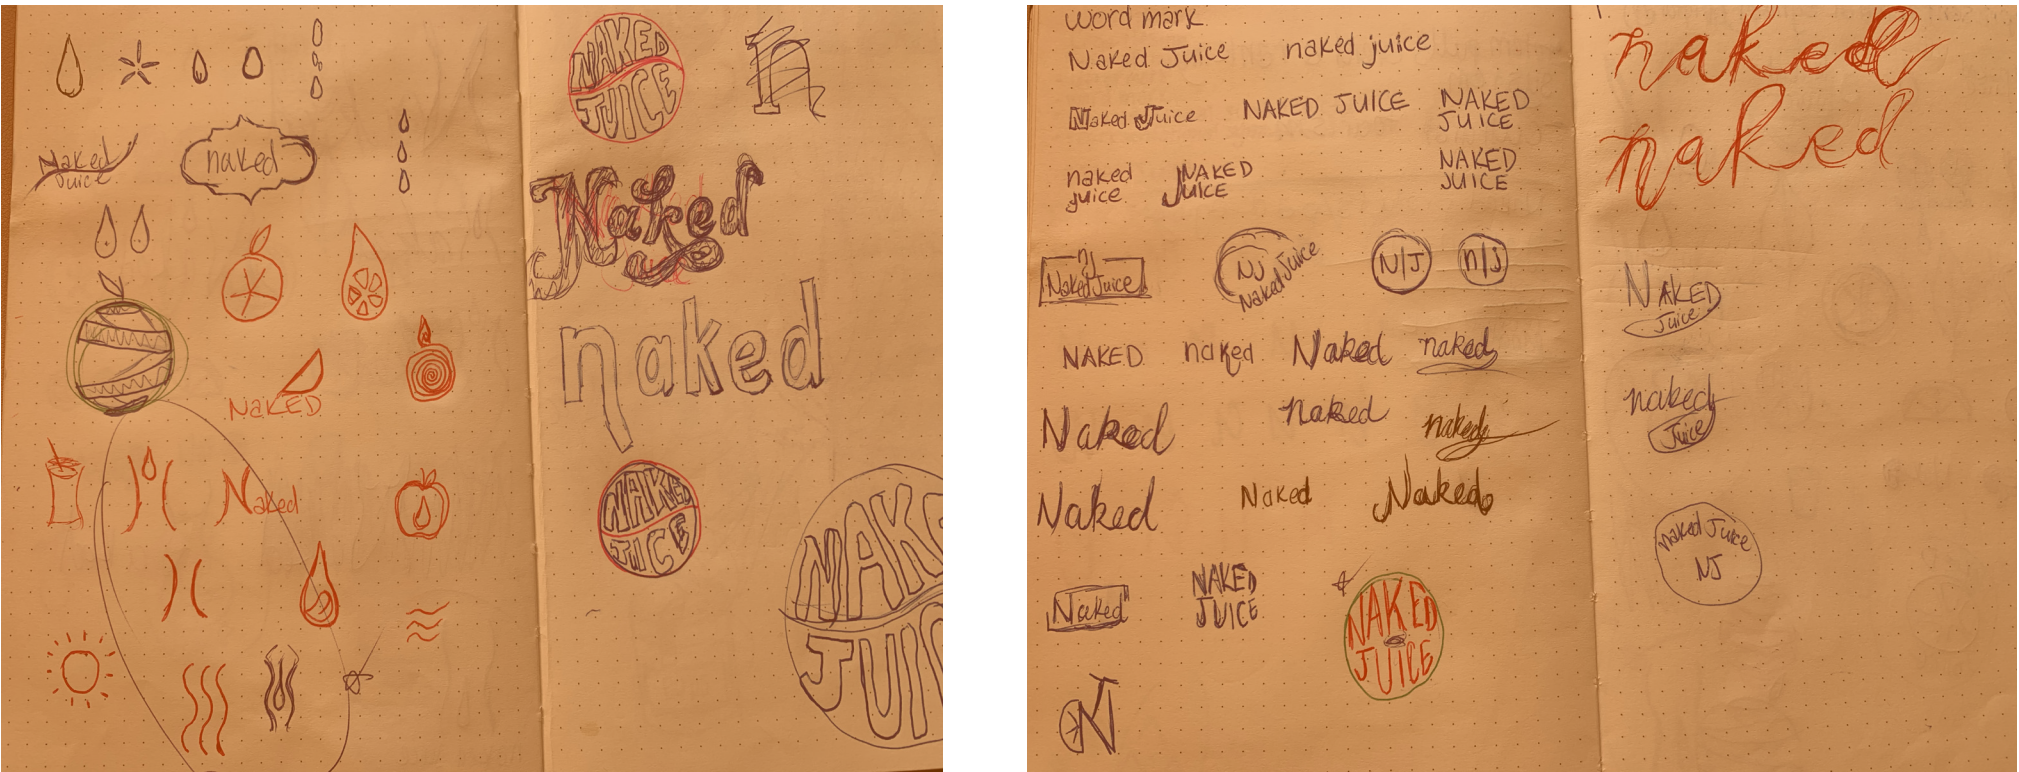 Naked
Juice
naked
NAKED
Naked
NAKED
JUICE
n
Naked
naked
NAKED
JUICE
NAKE
JUIC
word mark
Naked Juice
naked juice
Naked Juice
NAKED JUICE
NAKED
JUICE
naked
juice
NAKED
JUICE
NAKED
JUICE
nj
Naked Juice
NJ
Naked Juice
N|J
n|J
NAKED
naked
Naked
naked
Naked
naked
naked
Naked
Naked
Naked
Naked
NAKED
JUICE
NAKED
JUICE
NJ
naked
naked
NAKED
Juice
naked
Juice
Naked Juice
NJ